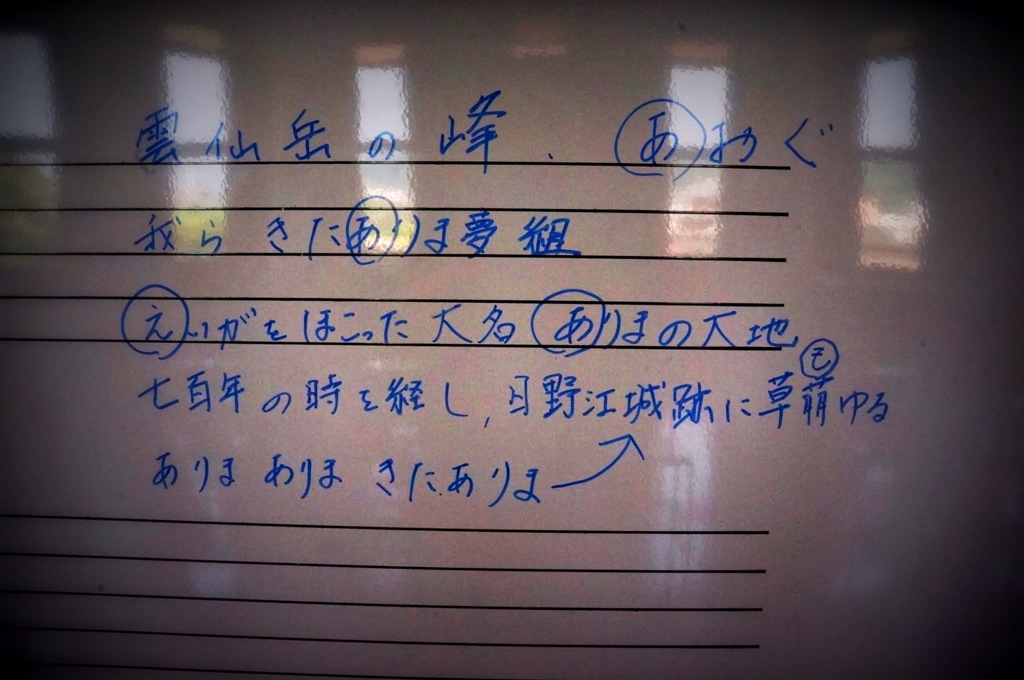 雲仙岳の峰、あおぐ
我らきたありま夢組
えいがをほこった大名ありまの大地
も
七百年の時を経し、日野江城跡に草萌ゆる
ありまありまきたありま